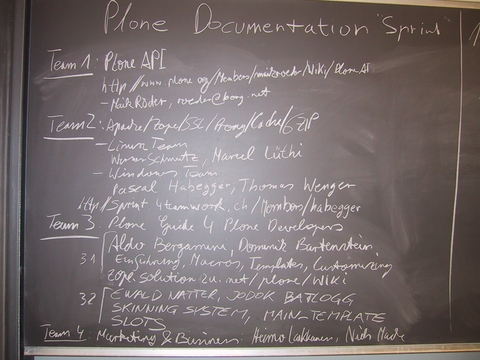 Plone Documentation "Sprint"
Team 1: Plone API
http://www.plone.org/Members/maikroeder/Wiki/PloneAPI
- Maik Röder, roeder@berg.net
Team 2: Apache/Zope/SSL/Proxy/Cache/GZIP
- Linux Team
Werner Schmutz, Marcel Lüthi
- Windows Team
Pascal Habegger, Thomas Wenger
http://sprint.4teamwork.ch/Members/habegger
Team 3: Plone Guide 4 Plone Developers
3.1 Aldo Bergamini, Dominik Bartenstein
Einführung, Macros, Templates, Customizing
zope.solution2u.net/plone/Wiki
3.2 EWALD NATTER, JODOK BATLOGG
SKINNING SYSTEM, MAIN_TEMPLATE
SLOTS
Team 4: Marketing & Business: Heimo Laukkanen,